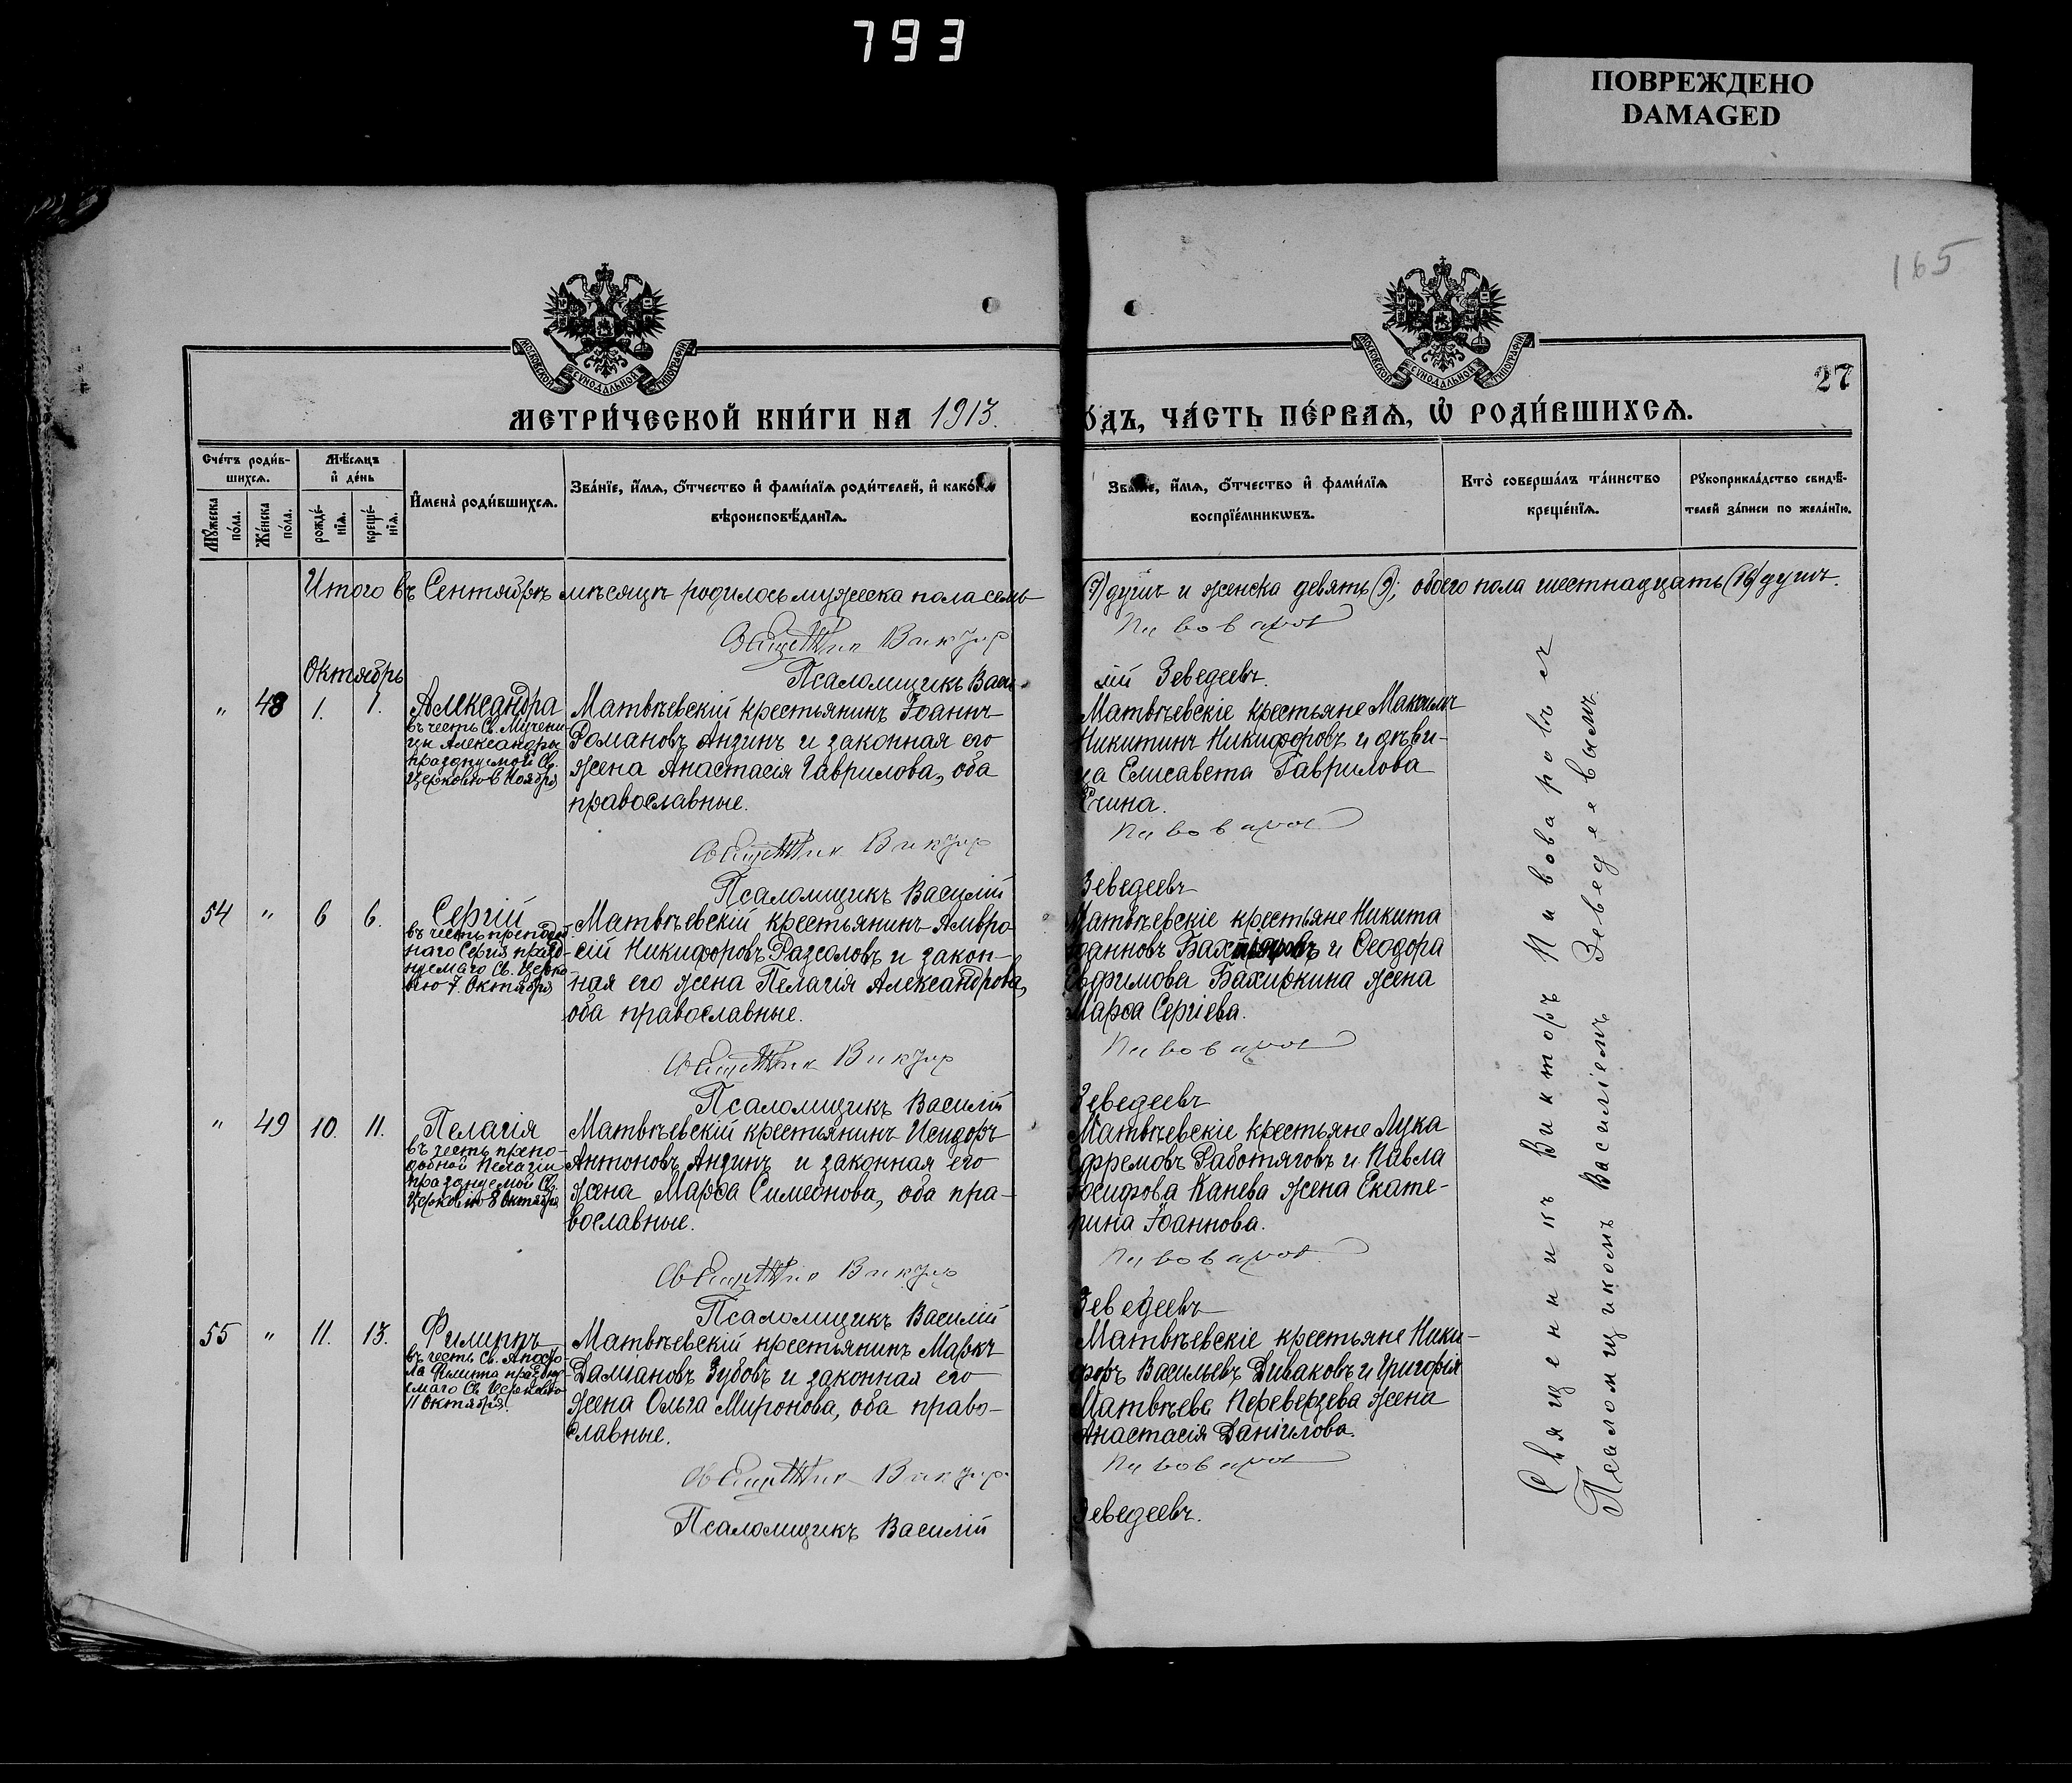 793
ПОВРЕЖДЕНО
DAMAGED
165
27
МОСКОВСКОЙ СѴНОДАЛЬНОЙ ТИПОГРАФІИ
МОСКОВСКОЙ СѴНОДАЛЬНОЙ ТИПОГРАФІИ
МЕТРИ́ЧЕСКОЙ КНИ́ГИ НА 1913.
О́ДЪ, ЧА́СТЬ ПЕ́РВАѦ, Ѡ РОДИ́ВШИХСѦ.
Сче́тъ роди́в-
шихсѧ.
Мѣ́сѧцъ
и҆ де́нь
Мꙋ́жеска
по́ла.
Же́нска
по́ла.
рожде́-
нїѧ.
креще́-
нїѧ.
И҆мена̀ роди́вшихсѧ.
Зва́нїе, и҆́мѧ, ѻ҆́тчество и҆ фами́лїѧ роди́телей, и҆ како́гѡ
вѣроисповѣ́данїѧ.
Зва́нїе, и҆́мѧ, ѻ҆́тчество и҆ фами́лїѧ
воспрїе́мникѡвъ.
Кто̀ соверша́лъ та́инство
креще́нїѧ.
Рꙋкоприкла́дство свидѣ́-
телей за́писи по жела́нїю.
Итого въ Сентябрѣ мѣсяцѣ родилось мужеска пола семь
(7) душъ и женска девять (9); обоего пола шестнадцать (16) душъ.
Священник Виктор
Пивоваров
Октябрь
Псаломщикъ Васи-
лій Зеведеевъ.
" 48 1. 1.
Александра
въ честь Св. Мучени-
цы Александры
празднуемой Св.
Церковью 6 Ноября
Матвѣевскій крестьянинъ Іоаннъ
Романовъ Андинъ и законная его
жена Анастасія Гаврилова, оба
православные.
Матвѣевскіе крестьяне Максимъ
Никитинъ Никифоровъ и дѣви-
ца Елисавета Гаврилова
Священник Виктор
Пивоваров
Псаломщикъ Василій
Зеведеевъ
54 " 6 6.
Сергій
въ честь преподоб-
наго Сергія празд-
нуемаго Св. Церко-
вью 7. Октября
Матвѣевскій крестьянинъ Амвро-
сій Никифоровъ Разсоловъ и закон-
ная его жена Пелагія Александрова,
оба православные.
Матвѣевскіе крестьяне Никита
Іоанновъ и Ѳеодора
Евфимова Бахиркина жена
Марѳа Сергіева.
Священник Виктор
Пивоваров
Псаломщикъ Василій
Зеведеевъ
" 49 10. 11.
Пелагія
въ честь препо-
добной Пелагіи
празднуемой Св.
Церковію 8 Октября
Матвѣевскій крестьянинъ Исидоръ
Антоновъ Андинъ и законная его
жена Марѳа Симеонова, оба пра-
вославные.
Матвѣевскіе крестьяне Лука
Ефремовъ Работяговъ и Павла
Іосифова Канева жена Екате-
рина Іоаннова.
Священник Виктор
Пивоваров
Псаломщикъ Василій
Зеведеевъ
55 " 11. 13.
Филиппъ
въ честь Св. Апосто-
ла Филиппа праздну-
емаго Св. Церковью
11 Октября.
Матвѣевскій крестьянинъ Маркъ
Даміановъ Зубовъ и законная его
жена Ольга Миронова, оба право-
славные.
Матвѣевскіе крестьяне Ники-
форъ Васильевъ Диваковъ и Григорія
Матвѣева Переверзева жена
Анастасія Даніилова.
Священник Виктор
Пивоваров
Псаломщикъ Василій
Зеведеевъ.
Священникъ Викторъ Пивоваровъ съ
Псаломщикомъ Василіемъ Зеведеевымъ.